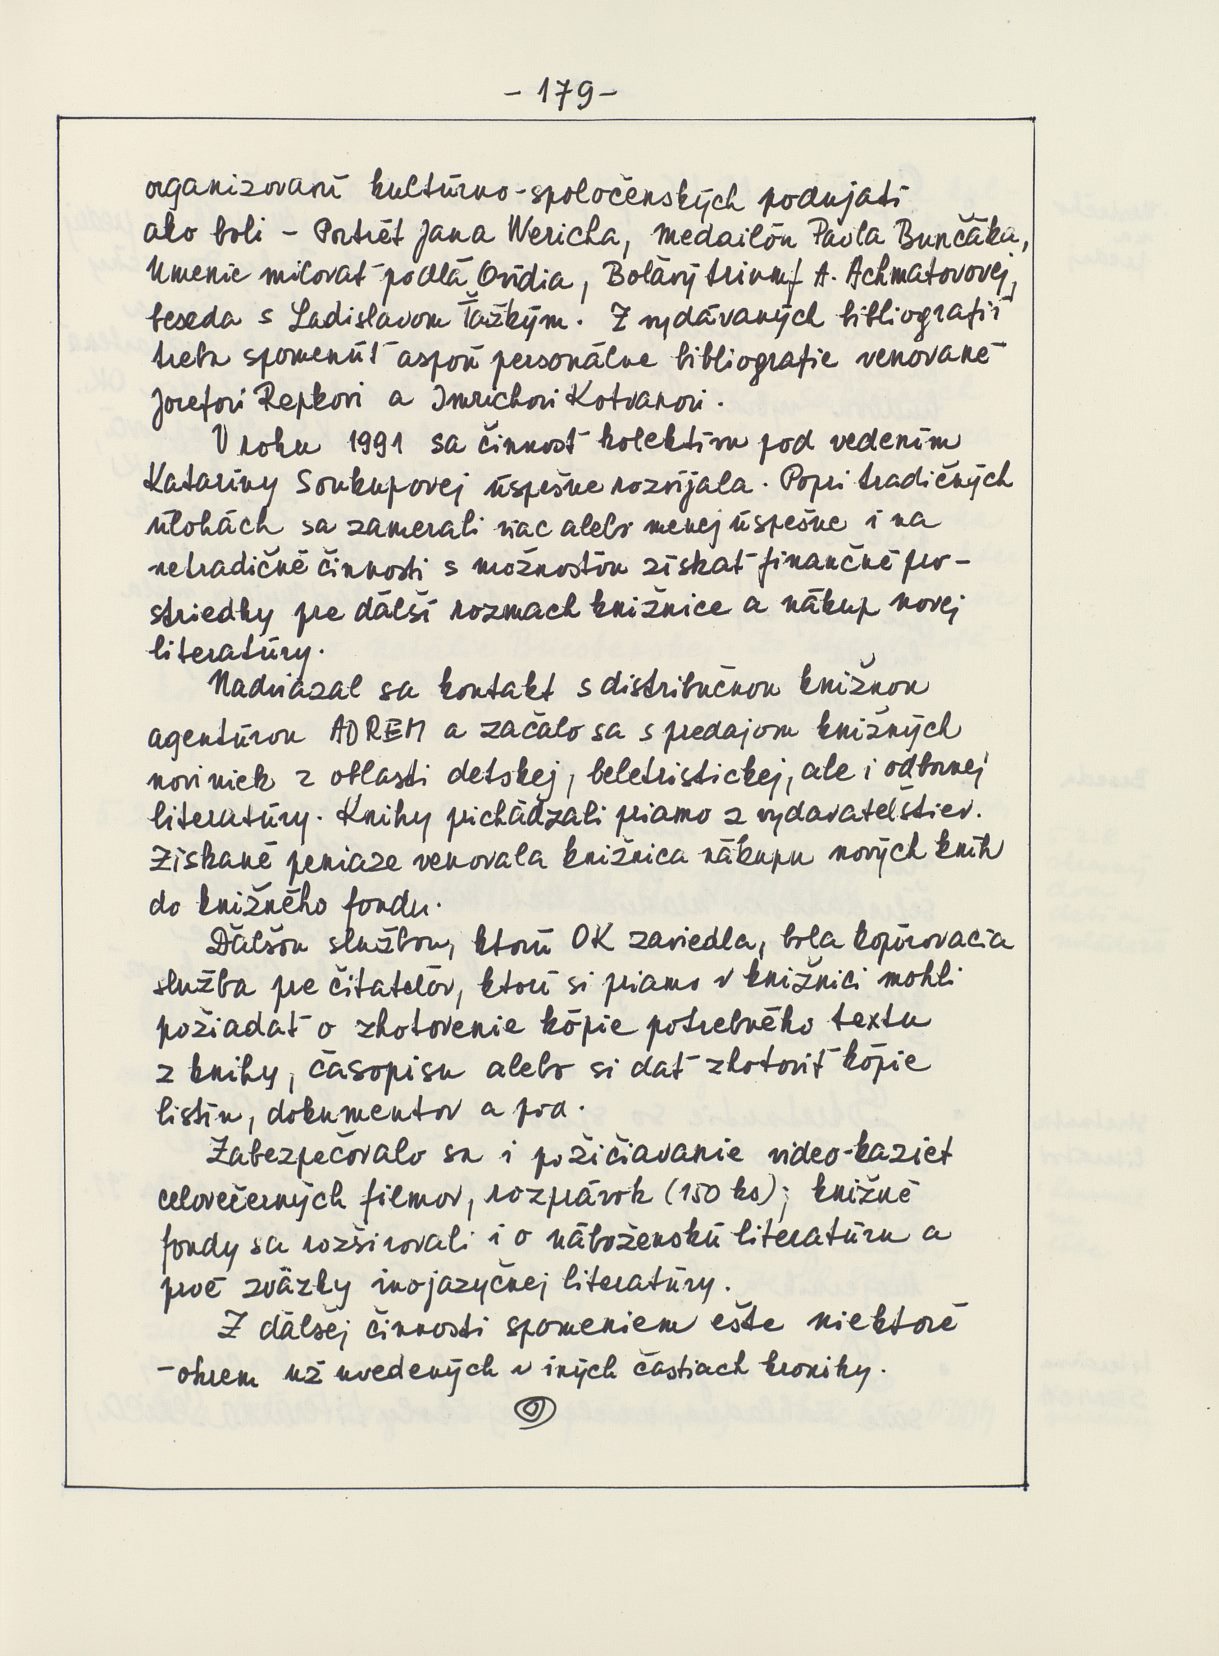 - 179 -
organizovaní kultúrno-spoločenských podujatí
ako boli - Portrét Jana Wericha, medailón Pavla Bunčáka,
Umenie milovať podľa Ovídia, Boľavý triumf A. Achmatovovej,
beseda s Ladislavom Ťažkým. Z vydávaných bibliografií
treba spomenúť aspoň personálne bibliografie venované
Jozefovi Repkovi a Imrichovi Kotvanovi.
V roku 1991 sa činnosť kolektívu pod vedením
Kataríny Soukupovej úspešne rozvíjala. Popri tradičných
úlohách sa zamerali viac alebo menej úspešne i na
netradičné činnosti s možnosťou získať finančné pro-
striedky pre ďalší rozmach knižnice a nákup novej
literatúry.
Nadviazal sa kontakt s distribučnou knižnou
agentúrou ADREM a začalo sa s predajom knižných
noviniek z oblasti detskej, beletristickej, ale i odbornej
literatúry. Knihy prichádzali priamo z vydavateľstiev.
Získané peniaze venovala knižnica nákupu nových kníh
do knižného fondu.
Ďalšou službou, ktorú OK zaviedla, bola kopírovacia
služba pre čitateľov, ktorí si priamo v knižnici mohli
požiadať o zhotovenie kópie potrebného textu
z knihy, časopisu alebo si dať zhotoviť kópie
listín, dokumentov a pod.
Zabezpečovalo sa i požičiavanie video-kaziet
celovečerných filmov, rozprávok (150 ks); knižné
fondy sa rozširovali i o náboženskú literatúru a
prvé zväzky inojazyčnej literatúry.
Z ďalšej činnosti spomeniem ešte niektoré
- okrem už uvedených v iných častiach kroniky.